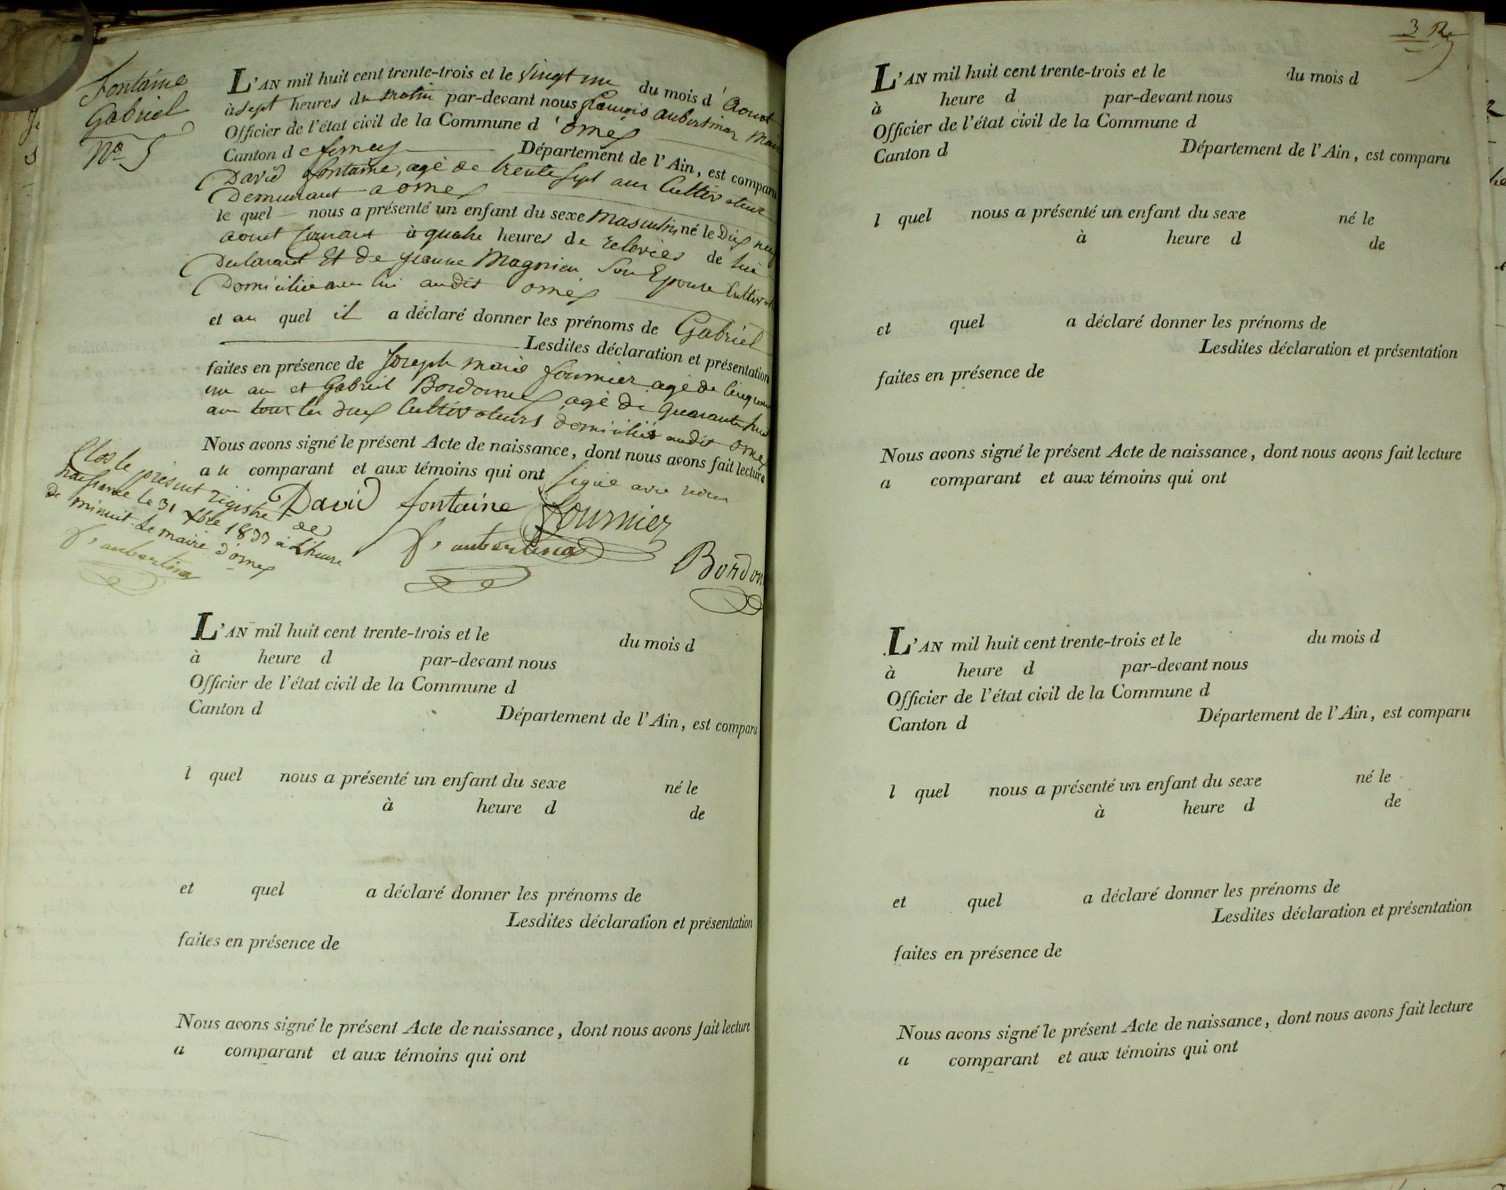 Fontaine
Gabriel
No 5
L'AN mil huit cent trente-trois et le vingt un du mois d'Aout
à sept heures du matin par-devant nous françois aubertin Maire
Officier de l'état civil de la Commune d'ornex
Canton de ferney Département de l'Ain, est comparu
David fontaine, agé de trente sept ans Cultivateur
Demeurant a ornex
le quel nous a présenté un enfant du sexe Masculin né le Dix neuf
aout courant à quatre heures de relevées de lui
Declarant Et de jeanne Magnien Son Epouse Cultiv
Domiciliée avec lui audit ornex
et au quel il a déclaré donner les prénoms de Gabriel
Lesdites déclaration et présentation
faites en présence de joseph marie fournier agé de cinquante
un an et Gabriel Bordon agé de quarante huit
an tous les deux Cultivateurs domiciliés audit ornex
Nous avons signé le présent Acte de naissance, dont nous avons fait lecture
a u comparant et aux témoins qui ont signé avec nous
David fontaine fournier
f. aubertin
Bordon
Clos le présent registre de
naissance le 31 Xbre 1833 à l'heure
de minuit Le maire d'ornex
f. aubertin
L'AN mil huit cent trente-trois et le du mois d
à heure d par-devant nous
Officier de l'état civil de la Commune d
Canton d Département de l'Ain, est comparu
l quel nous a présenté un enfant du sexe né le
à heure d de
et quel a déclaré donner les prénoms de
Lesdites déclaration et présentation
faites en présence de
Nous avons signé le présent Acte de naissance, dont nous avons fait lecture
a comparant et aux témoins qui ont
3
L'AN mil huit cent trente-trois et le du mois d
à heure d par-devant nous
Officier de l'état civil de la Commune d
Canton d Département de l'Ain, est comparu
l quel nous a présenté un enfant du sexe né le
à heure d de
et quel a déclaré donner les prénoms de
Lesdites déclaration et présentation
faites en présence de
Nous avons signé le présent Acte de naissance, dont nous avons fait lecture
a comparant et aux témoins qui ont
L'AN mil huit cent trente-trois et le du mois d
à heure d par-devant nous
Officier de l'état civil de la Commune d
Canton d Département de l'Ain, est comparu
l quel nous a présenté un enfant du sexe né le
à heure d de
et quel a déclaré donner les prénoms de
Lesdites déclaration et présentation
faites en présence de
Nous avons signé le présent Acte de naissance, dont nous avons fait lecture
a comparant et aux témoins qui ont